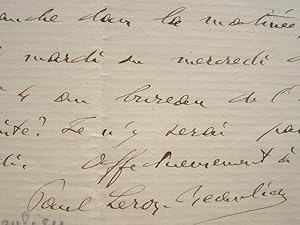 anche dans la matinée
mardi ou mercredi
4 au bureau de l'
Je n'y serai pas
di. Affectueusement à
Paul Leroy-Beaulieu